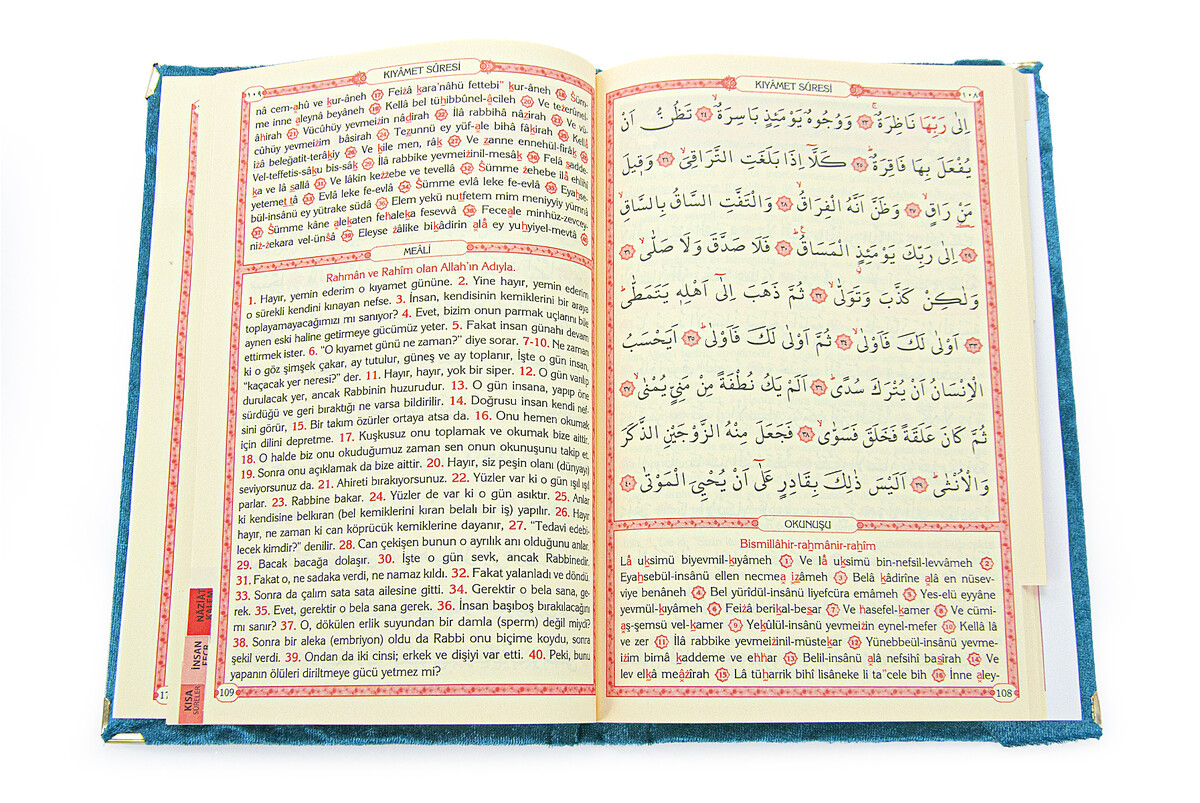 KIYÂMET SÛRESİ
١٠٨
اِلٰى رَبِّهَا نَاظِرَةٌۚ ﴿٢٣﴾ وَوُجُوهٌ يَوْمَئِذٍ بَاسِرَةٌۙ ﴿٢٤﴾ تَظُنُّ اَنْ
يُفْعَلَ بِهَا فَاقِرَةٌۜ ﴿٢٥﴾ كَلَّٓا اِذَا بَلَغَتِ التَّرَاقِيَۙ ﴿٢٦﴾ وَقٖيلَ
مَنْ رَاقٍۙ ﴿٢٧﴾ وَظَنَّ اَنَّهُ الْفِرَاقُۙ ﴿٢٨﴾ وَالْتَفَّتِ السَّاقُ بِالسَّاقِۙ
﴿٢٩﴾ اِلٰى رَبِّكَ يَوْمَئِذٍ الْمَسَاقُۜ ﴿٣٠﴾ فَلَا صَدَّقَ وَلَا صَلّٰىۙ ﴿٣١﴾
وَلٰكِنْ كَذَّبَ وَتَوَلّٰىۙ ﴿٣٢﴾ ثُمَّ ذَهَبَ اِلٰٓى اَهْلِهٖ يَتَمَطّٰىۜ
﴿٣٣﴾ اَوْلٰى لَكَ فَاَوْلٰىۙ ﴿٣٤﴾ ثُمَّ اَوْلٰى لَكَ فَاَوْلٰىۜ ﴿٣٥﴾ اَيَحْسَبُ
الْاِنْسَانُ اَنْ يُتْرَكَ سُدًىۜ ﴿٣٦﴾ اَلَمْ يَكُ نُطْفَةً مِنْ مَنِيٍّ يُمْنٰىۙ ﴿٣٧﴾
ثُمَّ كَانَ عَلَقَةً فَخَلَقَ فَسَوّٰىۙ ﴿٣٨﴾ فَجَعَلَ مِنْهُ الزَّوْجَيْنِ الذَّكَرَ
وَالْاُنْثٰىۜ ﴿٣٩﴾ اَلَيْسَ ذٰلِكَ بِقَادِرٍ عَلٰٓى اَنْ يُحْيِيَ الْمَوْتٰى ﴿٤٠﴾
OKUNUŞU
Bismillâhir-rahmânir-rahîm
Lâ uksimü biyevmil-kıyâmeh 1 Ve lâ uksimü bin-nefsil-levvâmeh 2
Eyahsebül-insânü ellen necmea izâmeh 3 Belâ kâdirîne alâ en nüsev-
viye benâneh 4 Bel yürîdül-insânü liyefcüra emâmeh 5 Yes-elü eyyâne
yevmül-kıyâmeh 6 Feizâ berikal-besar 7 Ve hasefel-kamer 8 Ve cümi-
aş-şemsü vel-kamer 9 Yekûlül-insânü yevmeizin eynel-mefer 10 Kellâ lâ
ve zer 11 İlâ rabbike yevmeizinil-müstekar 12 Yünebbeül-insânü yevme-
izim bimâ kaddeme ve ehhar 13 Belil-insânü alâ nefsihî basîrah 14 Ve
lev elkâ meâzîrah 15 Lâ tüharrik bihî lisâneke li ta"cele bih 16 İnne aley-
108
KIYÂMET SÛRESİ
١٠٩
nâ cem-ahû ve kur-âneh 17 Feizâ kara'nâhü fettebi" kur-âneh 18 Süm-
me inne aleynâ beyâneh 19 Kellâ bel tühibbûnel-âcileh 20 Ve tezerûnel-
âhirah 21 Vücûhüy yevmeizin nâdirah 22 İlâ rabbihâ nâzirah 23 Ve vü-
cûhüy yevmeizim bâsirah 24 Tezunnü ey yüf-ale bihâ fâkirah 25 Kellâ
izâ beleğatit-terâkiy 26 Ve kîle men, râk 27 Ve zanne ennehül-firâk 28
Vel-teffetis-sâku bis-sâk 29 İlâ rabbike yevmeizinil-mesâk 30 Felâ sadde-
ka ve lâ sallâ 31 Ve lâkin kezzebe ve tevellâ 32 Sümme zehebe ilâ ehlihî
yetemettâ 33 Evlâ leke fe-evlâ 34 Sümme evlâ leke fe-evlâ 35 Eyahse-
bül-insânü ey yütrake südâ 36 Elem yekü nutfetem mim meniyyiy yümnâ
37 Sümme kâne alekaten fehaleka fesevvâ 38 Feceale minhüz-zevcey-
niz-zekara vel-ünsâ 39 Eleyse zâlike bikâdirin alâ ey yuhyiyel-mevtâ 40
MEÂLİ
Rahmân ve Rahîm olan Allah'ın Adıyla.
1. Hayır, yemin ederim o kıyamet gününe. 2. Yine hayır, yemin ederim
o sürekli kendini kınayan nefse. 3. İnsan, kendisinin kemiklerini bir araya
toplayamayacağımızı mı sanıyor? 4. Evet, bizim onun parmak uçlarını bile
aynen eski haline getirmeye gücümüz yeter. 5. Fakat insan günahı devam
ettirmek ister. 6. "O kıyamet günü ne zaman?" diye sorar. 7-10. Ne zaman
ki o göz şimşek çakar, ay tutulur, güneş ve ay toplanır, İşte o gün insan,
"kaçacak yer neresi?" der. 11. Hayır, hayır, yok bir siper. 12. O gün varılıp
durulacak yer, ancak Rabbinin huzurudur. 13. O gün insana, yapıp öne
sürdüğü ve geri bıraktığı ne varsa bildirilir. 14. Doğrusu insan kendi nef-
sini görür, 15. Bir takım özürler ortaya atsa da. 16. Onu hemen okumak
için dilini depretme. 17. Kuşkusuz onu toplamak ve okumak bize aittir.
18. O halde biz onu okuduğumuz zaman sen onun okunuşunu takip et.
19. Sonra onu açıklamak da bize aittir. 20. Hayır, siz peşin olanı (dünyayı)
seviyorsunuz da. 21. Ahireti bırakıyorsunuz. 22. Yüzler var ki o gün ışıl ışıl
parlar. 23. Rabbine bakar. 24. Yüzler de var ki o gün asıktır. 25. Anlar
ki kendisine belkıran (bel kemiklerini kıran belalı bir iş) yapılır. 26. Hayır
hayır, ne zaman ki can köprücük kemiklerine dayanır, 27. "Tedavi edebi-
lecek kimdir?" denilir. 28. Can çekişen bunun o ayrılık anı olduğunu anlar.
29. Bacak bacağa dolaşır. 30. İşte o gün sevk, ancak Rabbinedir.
31. Fakat o, ne sadaka verdi, ne namaz kıldı. 32. Fakat yalanladı ve döndü.
33. Sonra da çalım sata sata ailesine gitti. 34. Gerektir o bela sana, ge-
rek. 35. Evet, gerektir o bela sana gerek. 36. İnsan başıboş bırakılacağını
mı sanır? 37. O, dökülen erlik suyundan bir damla (sperm) değil miydi?
38. Sonra bir aleka (embriyon) oldu da Rabbi onu biçime koydu, sonra
şekil verdi. 39. Ondan da iki cinsi; erkek ve dişiyi var etti. 40. Peki, bunu
yapanın ölüleri diriltmeye gücü yetmez mi?
109
NÂZİÂT
KALEM
İNSAN
FECR
KISA
SÛRELER